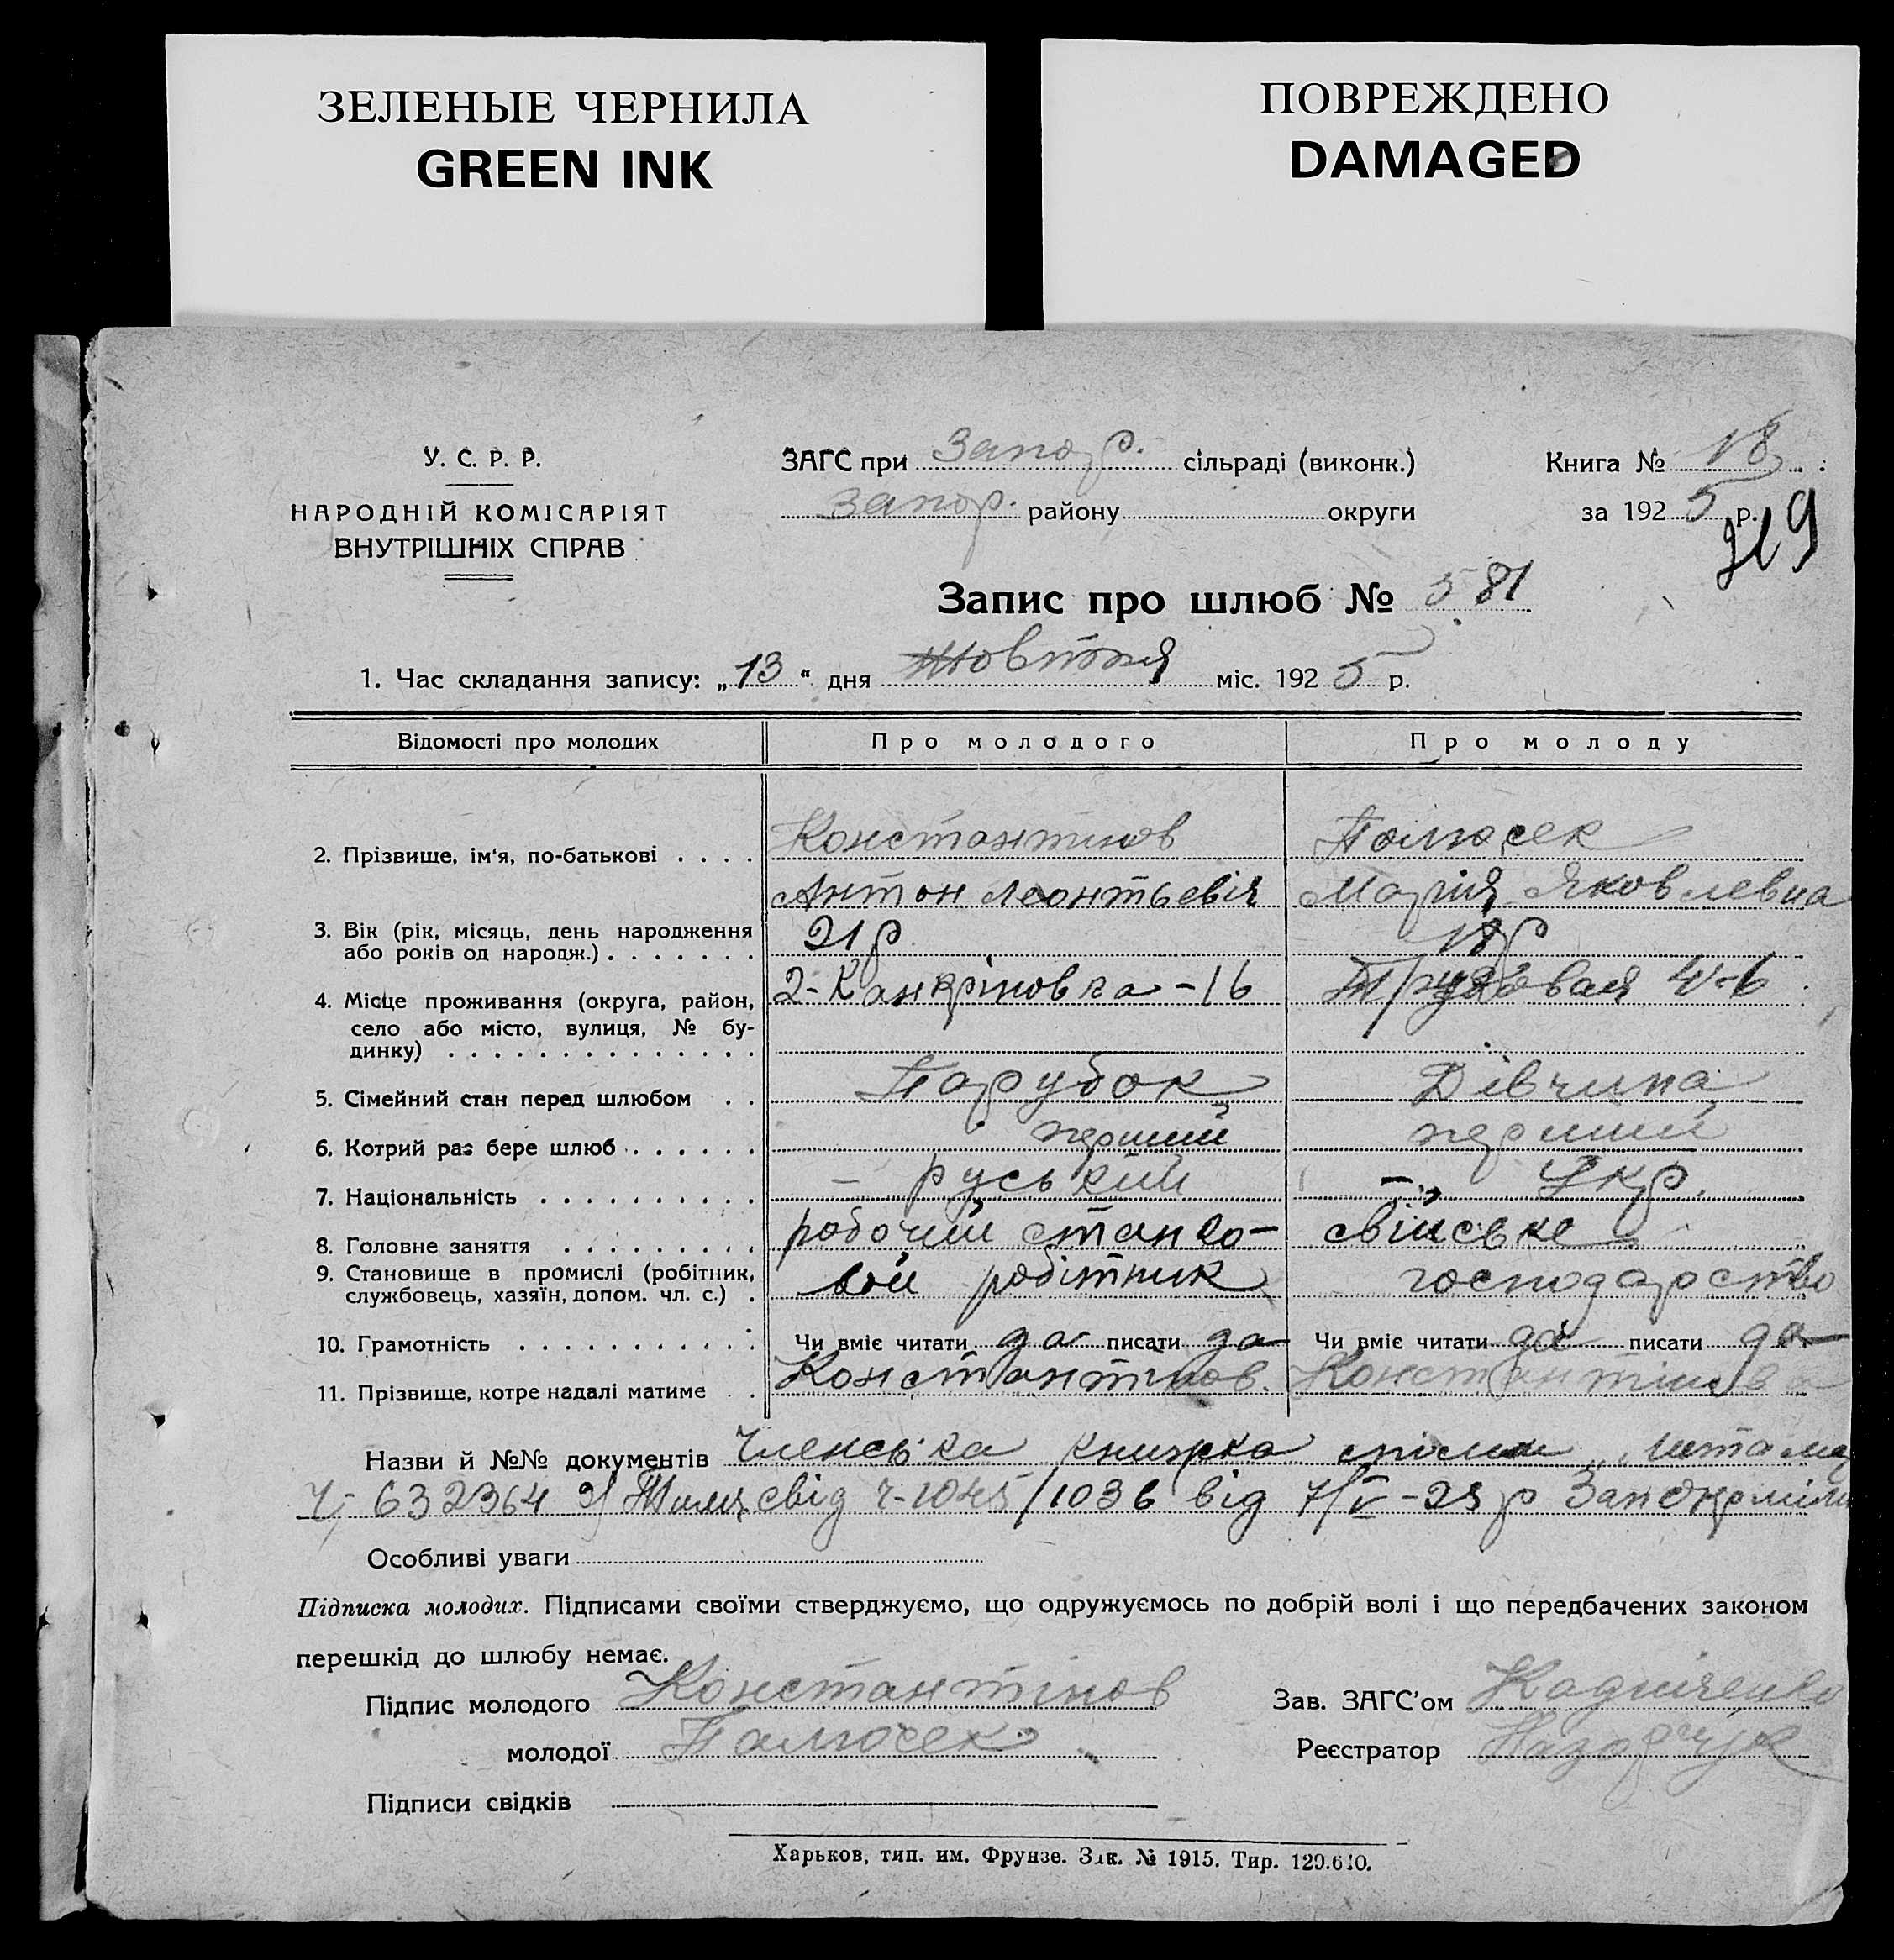 ЗЕЛЕНЫЕ ЧЕРНИЛА
GREEN INK
ПОВРЕЖДЕНО
DAMAGED
У. С. Р. Р.
НАРОДНІЙ КОМІСАРІЯТ
ВНУТРІШНІХ СПРАВ
ЗАГС при Запор. сільраді (виконк.)
Запор. району округи
Книга № 18
за 1925 р.
219
Запис про шлюб № 581
1. Час складання запису: „13“ дня жовтня міс. 1925 р.
Відомості про молодих Про молодого Про молоду
2. Прізвище, ім'я, по-батькові Константинов
Антон Леонтьевіч Марія Яковлевна
3. Вік (рік, місяць, день народження
або років од народж.) 21 р 18 р
4. Місце проживання (округа, район, 2-Канкріновка-16 Трудовая
село або місто, вулиця, № бу-
динку)
5. Сімейний стан перед шлюбом Парубок Дівчина
6. Котрий раз бере шлюб перший перший
7. Національність – руський – Укр.
8. Головне заняття робочий станко- свійське
9. Становище в промислі (робітник, вой робітник господарство
службовець, хазяїн, допом. чл. с.)
10. Грамотність Чи вміє читати да писати да Чи вміє читати да писати да
11. Прізвище, котре надалі матиме Константинов. Константінова
Назви й №№ документів Членська книжка спілки
632364 свід 1036 від
Особливі уваги
Підписка молодих. Підписами своїми стверджуємо, що одружуємось по добрій волі і що передбачених законом
перешкід до шлюбу немає.
Підпис молодого Константінов Зав. ЗАГС'ом
молодої Реєстратор
Підписи свідків
Харьков, тип. им. Фрунзе. Зак. № 1915. Тир. 120.610.